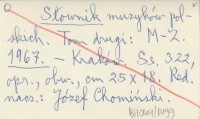 Słownik muzyków pol-
skich. Tom drugi: M-Z.
1967. - Kraków. Ss. 322,
opr., obw., cm 25 x 18. Red.
nacz.: Józef Chomiński.